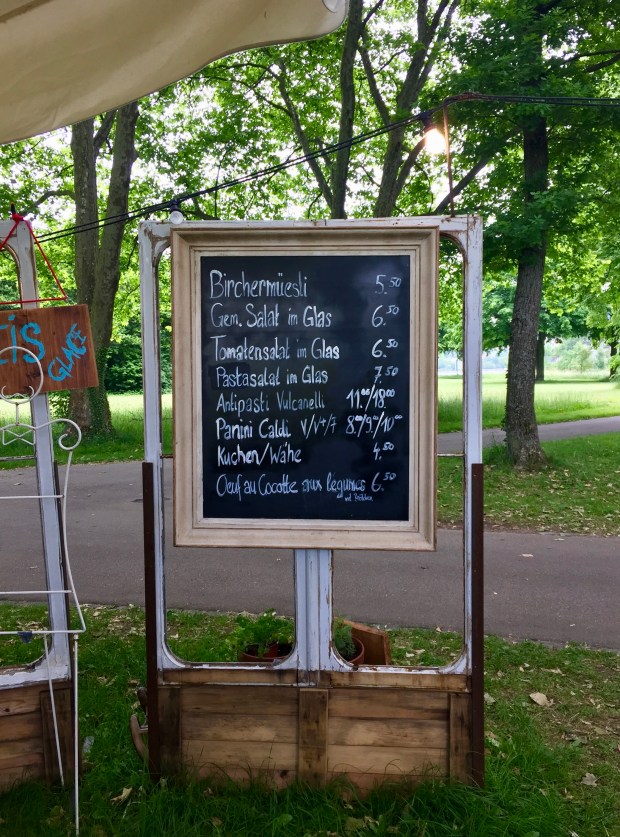 Eis
GLACE
Birchermüesli 5.50
Gem. Salat im Glas 6.50
Tomatensalat im Glas 6.50
Pastasalat im Glas 7.50
Antipasti Vulcanelli 11.00/18.00
Panini Caldi V/V+/F 8.00/9.00/10.00
Kuchen/Wähe 4.50
Oeuf au Cocotte aux légumes 6.50
mit Brötchen